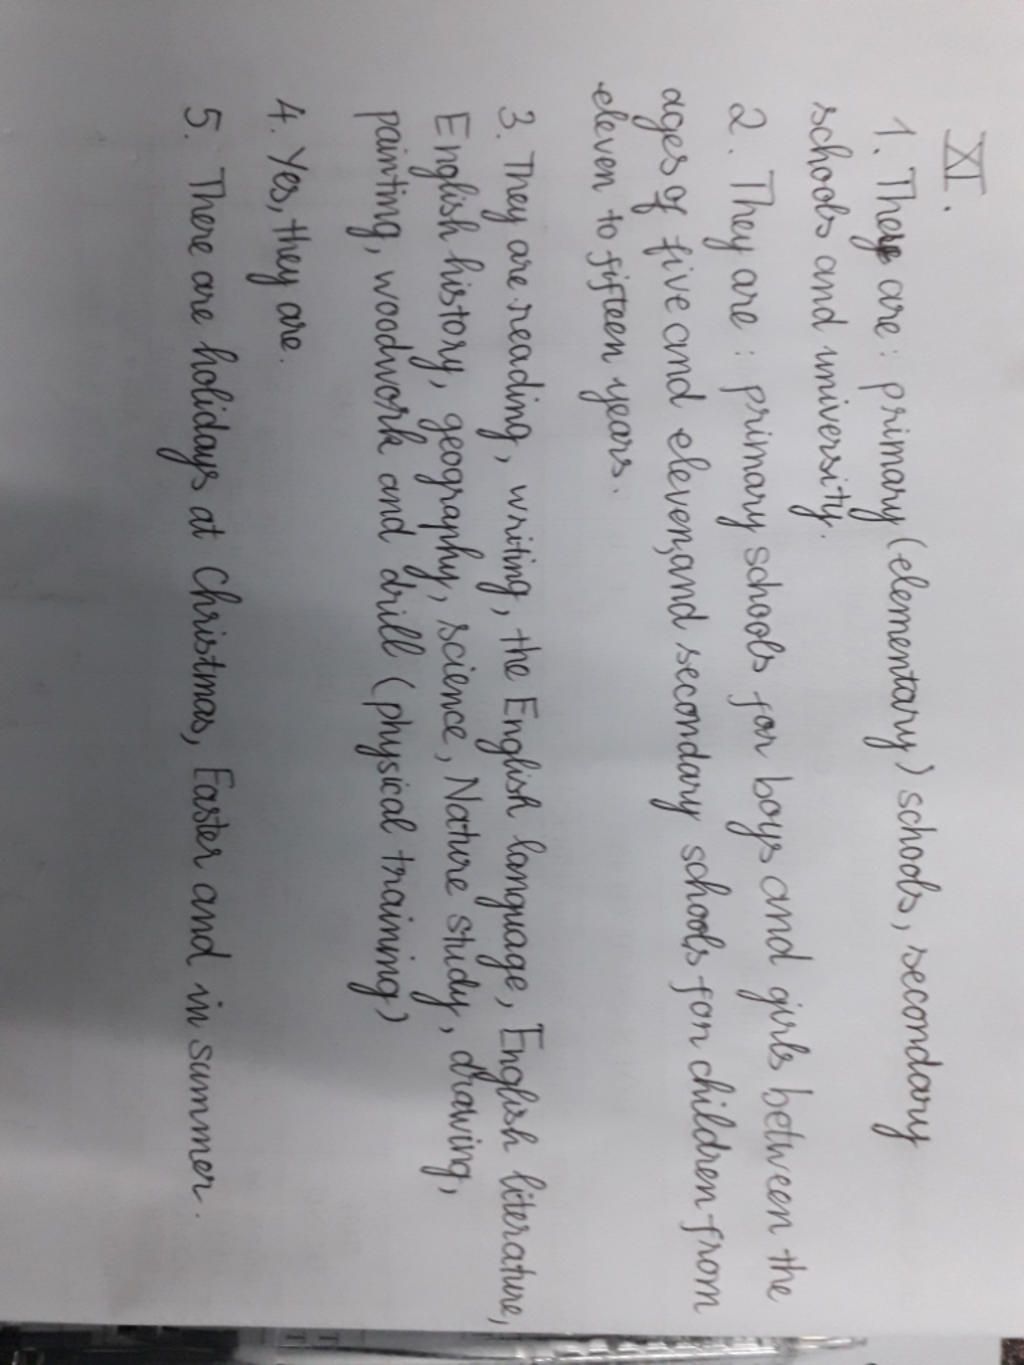 XI.
1. They are: primary (elementary) schools, secondary
schools and university.
2. They are: primary schools for boys and girls between the
ages of five and eleven, and secondary schools for children from
eleven to fifteen years.
3. They are reading, writing, the English language, English literature,
English history, geography, science, Nature study, drawing,
painting, woodwork and drill (physical training)
4. Yes, they are.
5. There are holidays at Christmas, Easter and in summer.